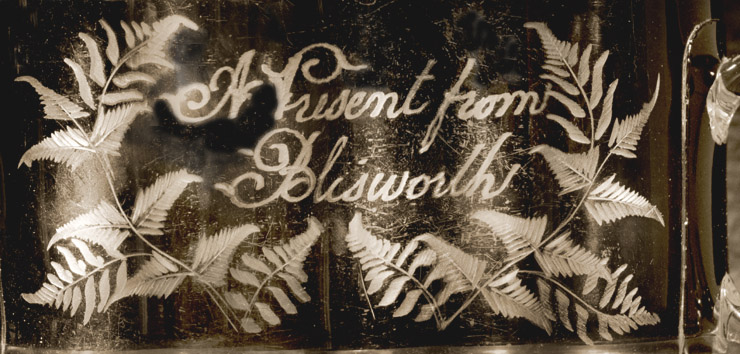 A Present from
Blisworth